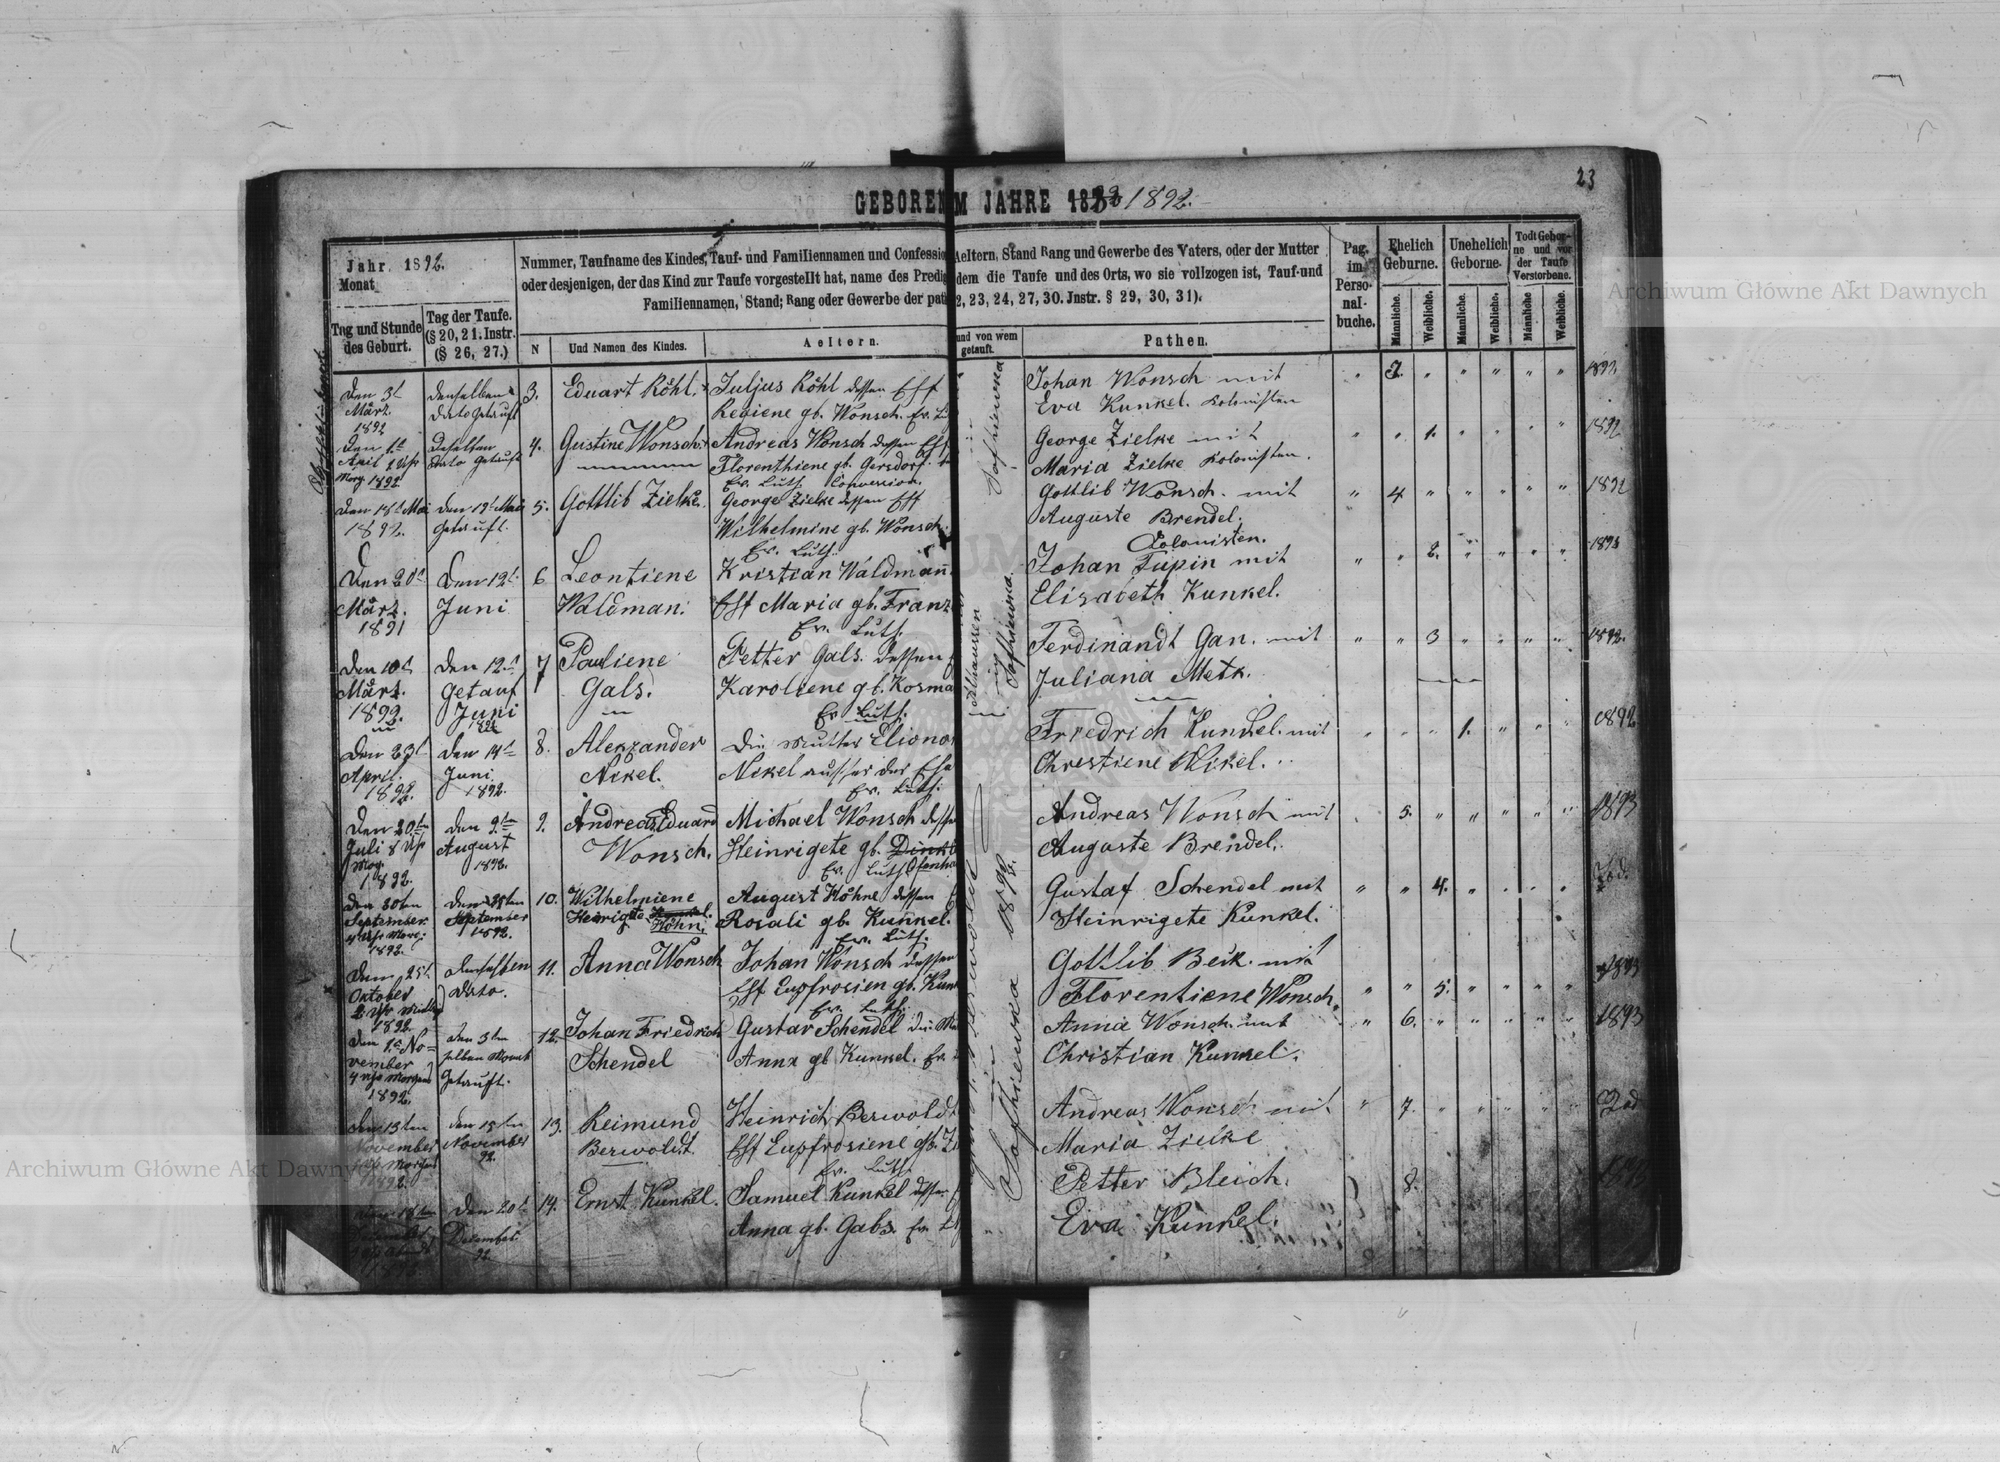 23
GEBOREN IM JAHRE 1892.
Jahr 1892.
Monat
Tag und Stunde des Geburt.
Tag der Taufe.
(§ 20, 21. Instr.
(§ 26, 27.)
Nummer, Taufname des Kindes, Tauf- und Familiennamen und Confession Aeltern, Stand Rang und Gewerbe des Vaters, oder der Mutter
oder desjenigen, der das Kind zur Taufe vorgestellt hat, name des Predig dem die Taufe und des Orts, wo sie vollzogen ist, Tauf-und
Familiennamen, Stand; Rang oder Gewerbe der pat 2, 23, 24, 27, 30. Jnstr. § 29, 30, 31).
N
Und Namen des Kindes.
Aeltern.
und von wem getauft.
Pathen.
Pag. im Perso- nal- buche.
Ehelich Geburne.
Unehelich Geborne.
Todt Gebor- ne und vor der Taufe Verstorbene.
Männliche.
Weibliche.
Männliche.
Weibliche.
Männliche
Weibliche.
Den 3t März. 1892
denselben dato getauft
3.
Eduart Röhl.
Juljus Röhl dessen Eff
Regiene gb. Wonsch. Ev. Lu
Johan Wonsch mit
Eva Kunkel. Kolonisten
1893
Den 1t April 2 Uhr Morg 1892
Deselben Dato getauft
4.
Gustine Wonsch.
Andreas Wonsch dessen Eff
Florenthiene gb. Gersdorf.
Ev. Luth. Convession.
George Zielke mit
Maria Zielke Kolonisten.
1.
1892
Den 18t Mai 1892.
Den 19t Mai getauft.
5.
Gottlib Zielke.
George Zielke dessen Eff
Wilhelmine gb. Wonsch.
Ev. Luth.
Gottlib Wonsch. mit
Auguste Brendel.
Kolonisten.
4
1892
Den 20t März. 1891
Den 12t Juni
6
Leontiene
Waldman.
Kristian Waldmañ.
Eff Maria gb. Franz
Ev. Luth.
Johan Tupin mit
Elisabeth Kunkel.
2.
1893
Den 10t März. 1892.
Den 12t getauf Juni
7
Pauliene
Gals.
Petter Gals. dessen
Karoliene gb. Kosma
Ev. Luth.
Ferdinandt Gan. mit
Juliana Metk.
3
1892.
Den 23t April. 1892.
Den 14t Juni 1892.
8.
Alexzander
Nikel.
Die Mutter Elionor
Nikel ausser der Ehe
Ev. Luth.
Friedrich Kunkel. mit
Chrestiene Nikel.
1.
1892
Den 20ten Juli 8 Uhr Morg. 1892.
den 9ten August 1892.
9.
Andreas Eduard
Wonsch.
Michael Wonsch dessen
Heinrigete gb.
Ev. Luth.
Andreas Wonsch mit
Auguste Brendel.
5.
1893
den 30ten September 4 Uhr Morg. 1892.
den 25ten September 1892.
10.
Wilhelmiene
Heinrigte Köhn.
August Köhne dessen
Rosali gb. Kunkel.
Ev. Luth.
Gustaf Schendel mit
Heinrigete Kunkel.
4.
Tod.
Dem 25t Oktober 2 Uhr 1892.
denselben dato.
11.
Anna Wonsch
Johan Wonsch dessen
Eff Eupfrosien gb. Kun
Ev. Luth.
Gottlib Beik. mit
Florentiene Wonsch.
5.
1893
Den 1t No= vember 4 Uhr Morgens 1892.
Den 3ten selben Monat getauft.
12.
Johan Friedrich
Schendel
Gustav Schendel die
Anna gb Kunkel. Ev.
Anna Wonsch. mit
Christian Kunkel.
6.
1893
Den 13ten November Morgens 1892.
Den 15ten November 92.
13.
Reimund
Berwoldt.
Heinrich Berwoldt
Eff Eupfrosiene gb.
Ev. Luth.
Andreas Wonsch mit
Maria Zielke
7.
Tod
Den 18ten
Den 20t Dezember 92.
14.
Ernst Kunkel.
Samuel Kunkel dessen
Anna gb. Gabs. Ev.
Petter Bleich.
Eva Kunkel.
8.
Sofhiewka
Althausen
in
Sofhiewka
Sofhiewka 1892.
Archiwum Główne Akt Dawnych
Archiwum Główne Akt Dawnych